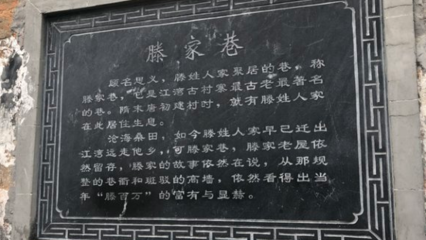 滕家巷
顾名思义，滕姓人家聚居的巷，称
滕家巷，它是江湾古村寨最古老最著名
的巷。隋末唐初建村时，就有滕姓人家
在此居住生息。
沧海桑田，如今滕姓人家早已迁出
江湾远走他乡，可滕家巷，滕家老屋依
然留存，滕家的故事依然在说，从那规
整的巷衢和斑驳的高墙，依然看得出当
年“滕百万”的富有与显赫。